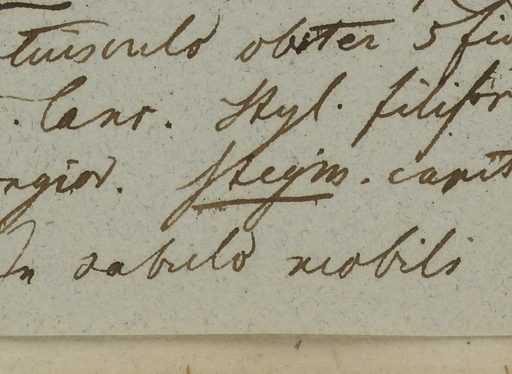 tuisculo obiter 5 fi
. Cans. Styl. filifor
ngior. Stegm. capit
In sabulo mobili